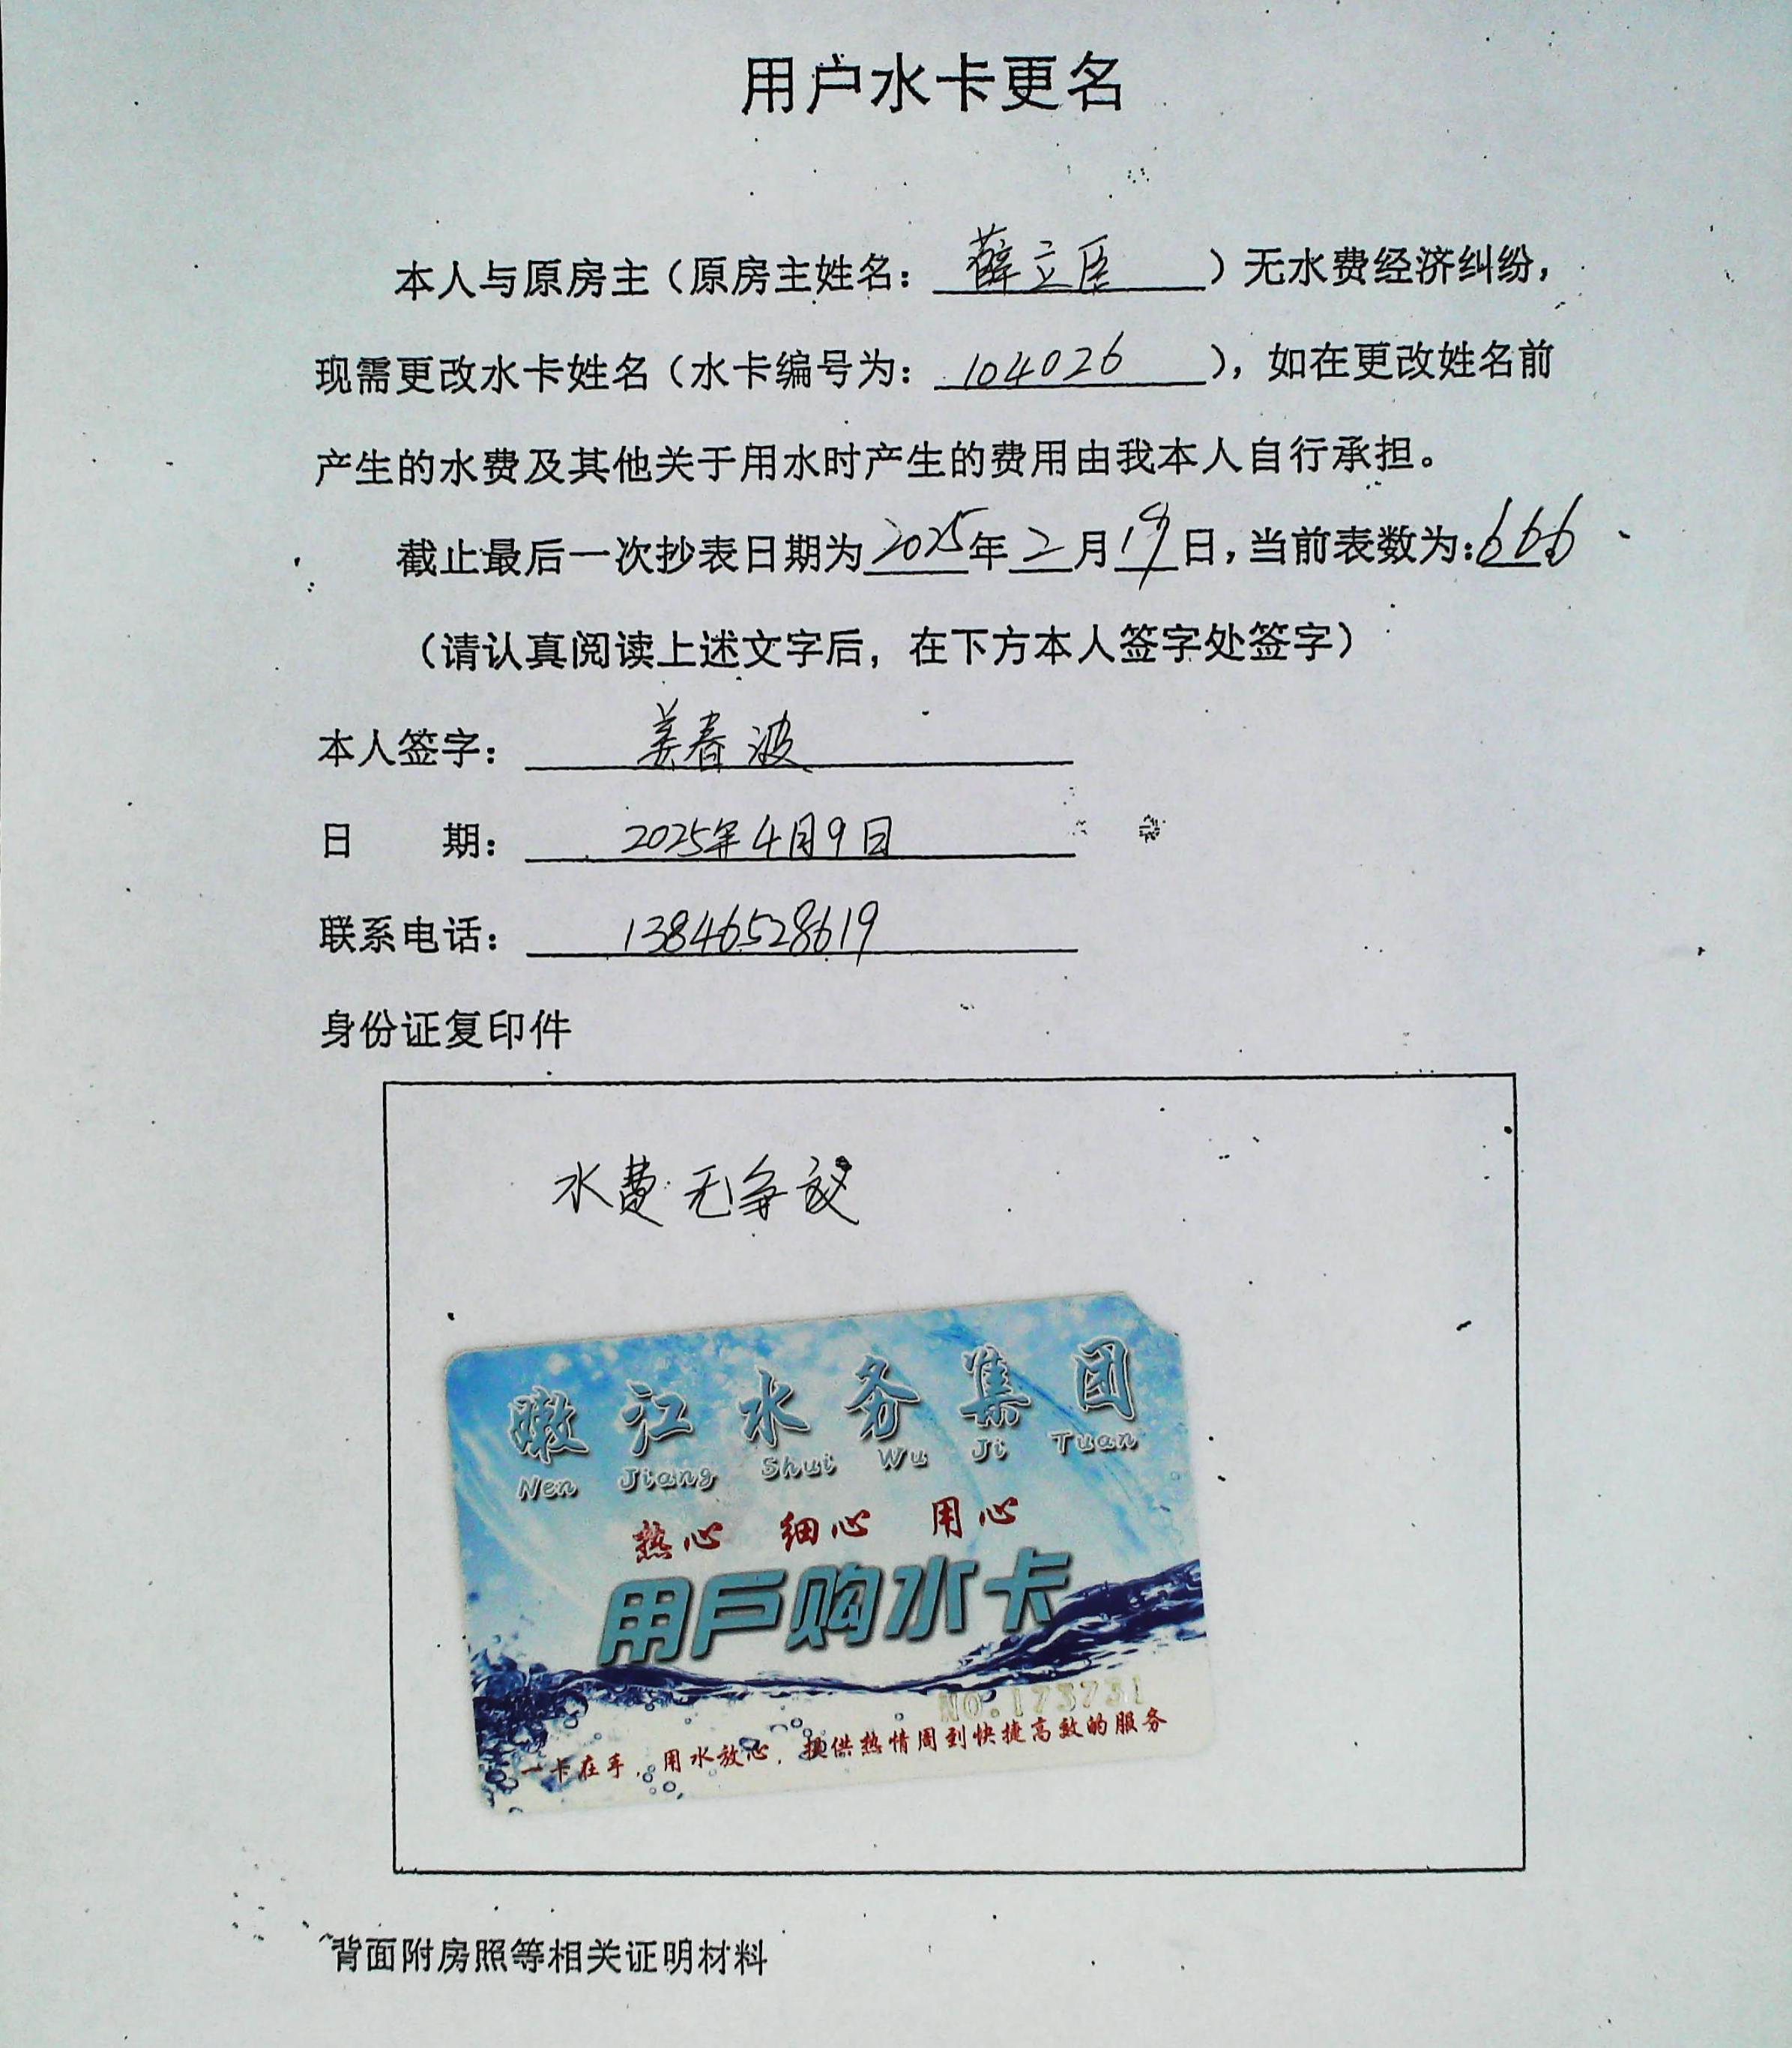 用户水卡更名
本人与原房主（原房主姓名：薛立臣）无水费经济纠纷，
现需更改水卡姓名（水卡编号为：104026），如在更改姓名前
产生的水费及其他关于用水时产生的费用由我本人自行承担。
截止最后一次抄表日期为2025年2月19日，当前表数为：666
（请认真阅读上述文字后，在下方本人签字处签字）
本人签字：姜春波
日　　期：2025年4月9日
联系电话：13846528619
身份证复印件
水费无争议
嫩江水务集团
Nen Jiang Shui Wu Ji Tuan
热心 细心 用心
用户购水卡
NO.173731
一卡在手，用水放心，提供热情周到快捷高效的服务
背面附房照等相关证明材料